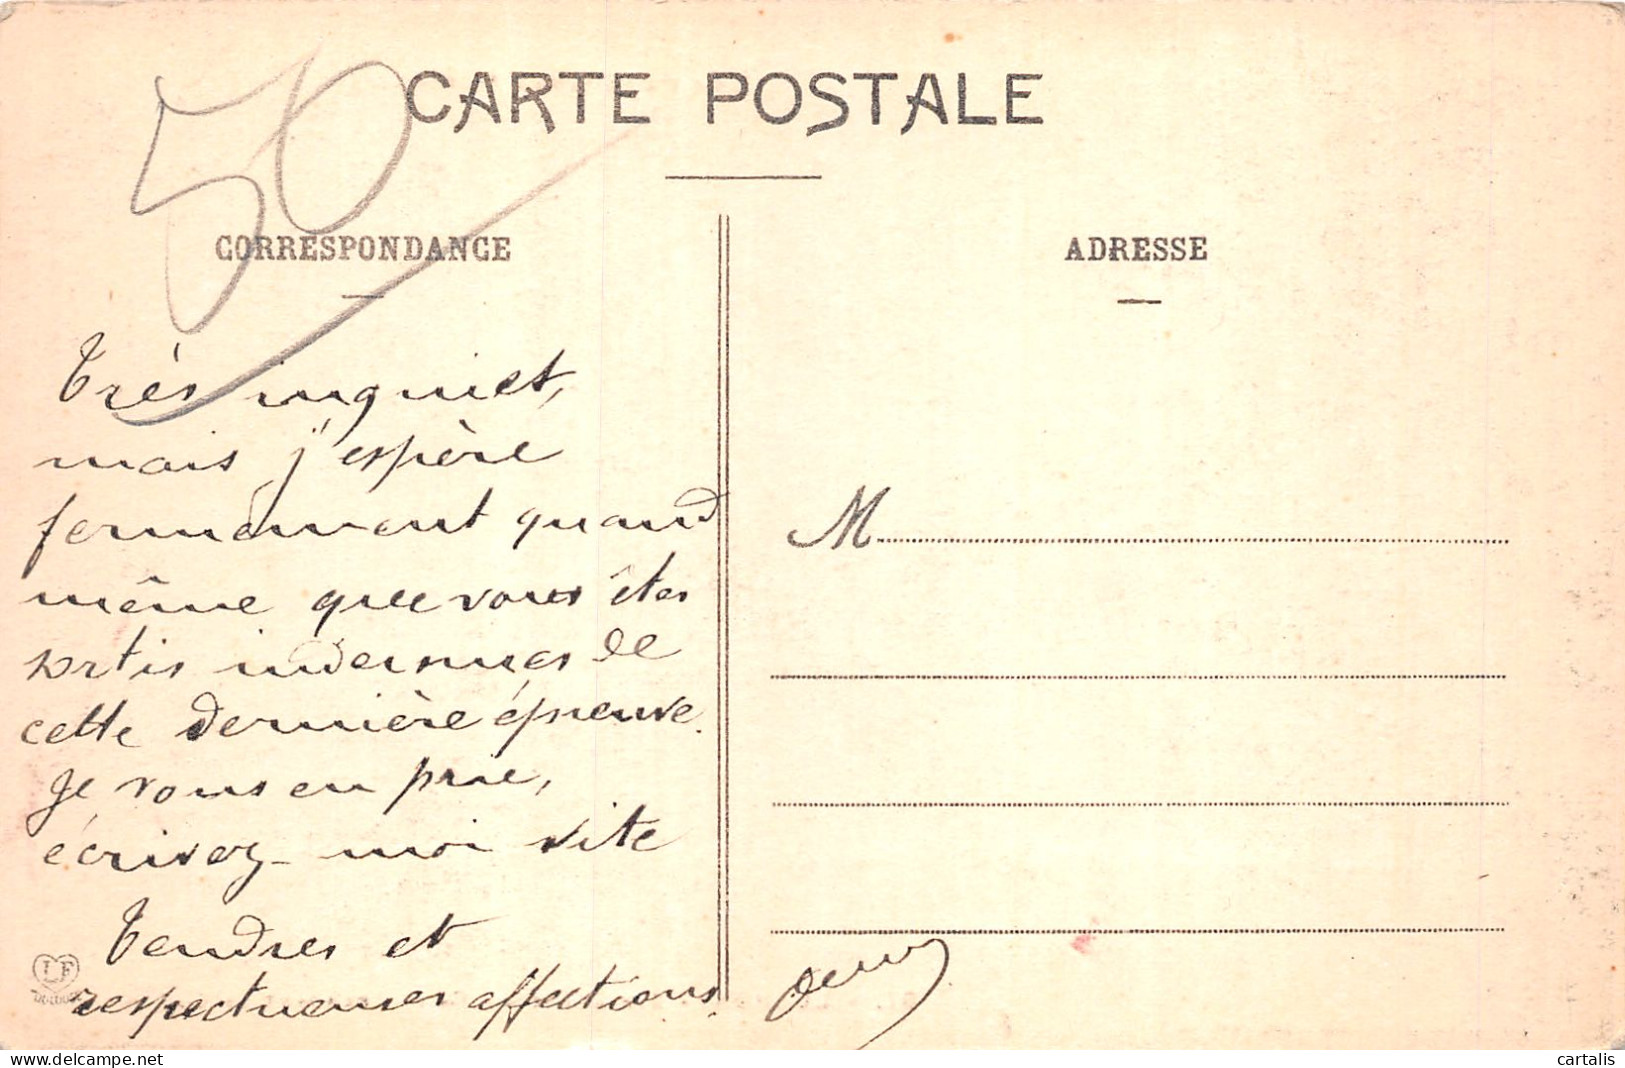 50
CARTE POSTALE
CORRESPONDANCE
ADRESSE
Très inquiet,
mais j'espère
fermement quand
même que vous êtes
sortis indemnes de
cette dernière épreuve.
Je vous en prie,
écrivez-moi vite
Tendres et
respectueuses affections.
M
LF
cartalis